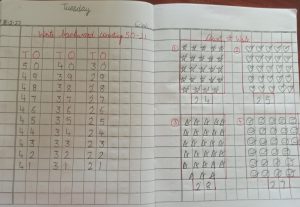 Tuesday
Write backward counting 50-21
T O T O T O
5 0 4 0 3 0
4 9 3 9 2 9
4 8 3 8 2 8
4 7 3 7 2 7
4 6 3 6 2 6
4 5 3 5 2 5
4 4 3 4 2 4
4 3 3 3 2 3
4 2 3 2 2 2
4 1 3 1 2 1
Count &
1
2
24
25
3
4
28
27